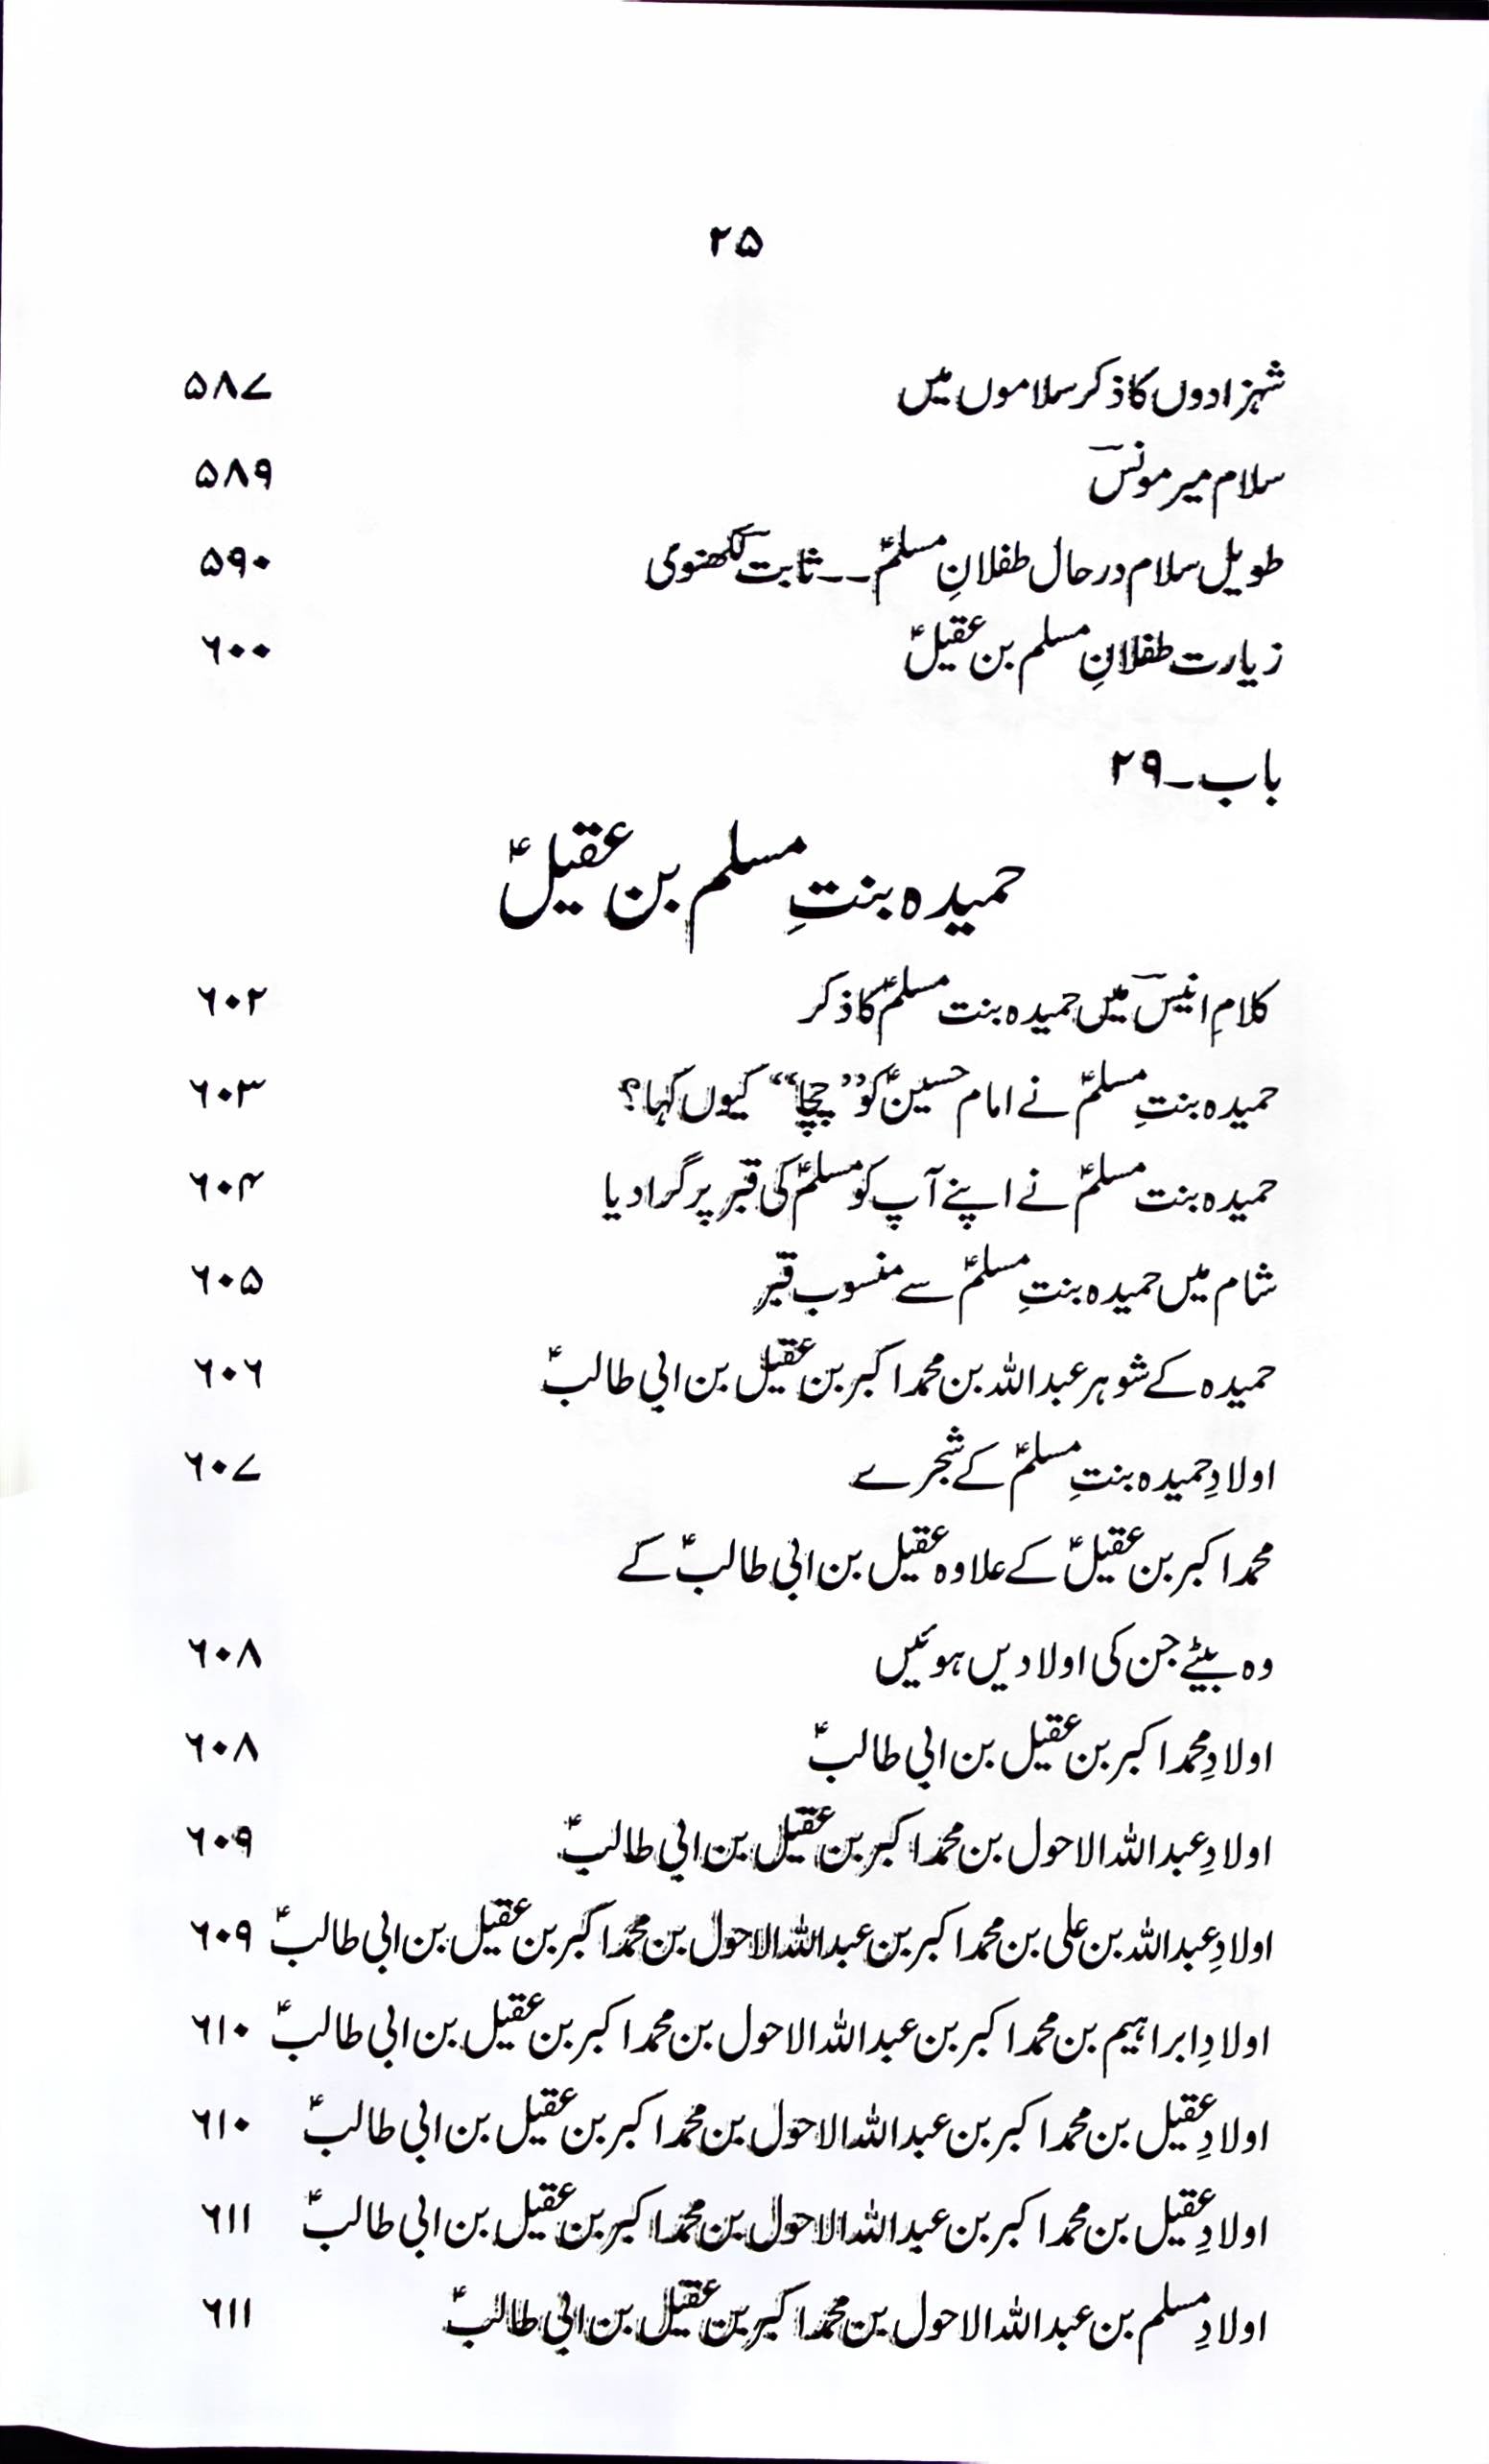 ۲۵
شہزادوں کا ذکر سلاموں میں ۵۸۷
سلام میر مونسؔ ۵۸۹
طویل سلام در حال طفلانِ مسلمؑ ۔۔ ثابتؔ لکھنوی ۵۹۰
زیارت طفلانِ مسلم بن عقیلؑ ۶۰۰
باب۔۲۹
حمیدہ بنتِ مسلم بن عقیلؑ
کلامِ انیسؔ میں حمیدہ بنت مسلمؑ کا ذکر ۶۰۲
حمیدہ بنتِ مسلمؑ نے امام حسینؑ کو ”چچا“ کیوں کہا؟ ۶۰۳
حمیدہ بنت مسلمؑ نے اپنے آپ کو مسلمؑ کی قبر پر گرا دیا ۶۰۴
شام میں حمیدہ بنتِ مسلمؑ سے منسوب قبر ۶۰۵
حمیدہ کے شوہر عبداللہ بن محمد اکبر بن عقیلؑ بن ابی طالبؑ ۶۰۶
اولادِ حمیدہ بنتِ مسلمؑ کے شجرے ۶۰۷
محمد اکبر بن عقیلؑ کے علاوہ عقیل بن ابی طالبؑ کے
وہ بیٹے جن کی اولادیں ہوئیں ۶۰۸
اولادِ محمد اکبر بن عقیل بن ابی طالبؑ ۶۰۸
اولادِ عبداللہ الاحول بن محمد اکبر بن عقیل بن ابی طالبؑ ۶۰۹
اولادِ عبداللہ بن علی بن محمد اکبر بن عبداللہ الاحول بن محمد اکبر بن عقیل بن ابی طالبؑ ۶۰۹
اولادِ ابراہیم بن محمد اکبر بن عبداللہ الاحول بن محمد اکبر بن عقیل بن ابی طالبؑ ۶۱۰
اولادِ عقیل بن محمد اکبر بن عبداللہ الاحول بن محمد اکبر بن عقیل بن ابی طالبؑ ۶۱۰
اولادِ عقیل بن محمد اکبر بن عبداللہ الاحول بن محمد اکبر بن عقیل بن ابی طالبؑ ۶۱۱
اولادِ مسلم بن عبداللہ الاحول بن محمد اکبر بن عقیل بن ابی طالبؑ ۶۱۱